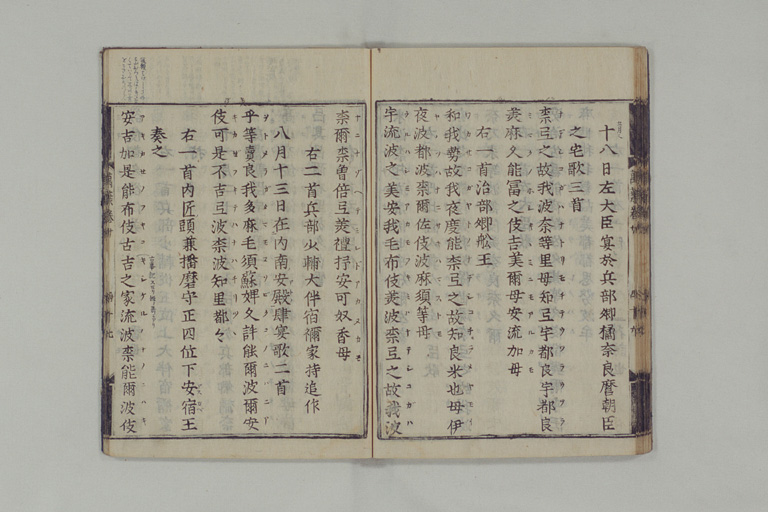 十八日左大臣宴於兵部卿橘奈良麿朝臣
之宅歌三首
奈弖之故我波奈等里母知弖宇都良宇都良
美麻久能富之伎吉美爾母安流加母
右一首治部卿舩王
和我勢故我夜度能奈弖之故知良米也母伊
夜波都波奈爾佐伎波麻須等母
宇流波之美安我毛布伎美波奈弖之故我波
奈爾奈曽倍弖美禮杼安可奴香母
右二首兵部少輔大伴宿禰家持追作
八月十三日在内南安殿肆宴歌二首
乎等賣良我多麻毛須蘇婢久許能爾波爾安
伎可是不吉弖波奈波知里都々
右一首内匠頭兼播磨守正四位下安宿王
奏之
安吉加是能布伎古吉之家流波奈能爾波伎